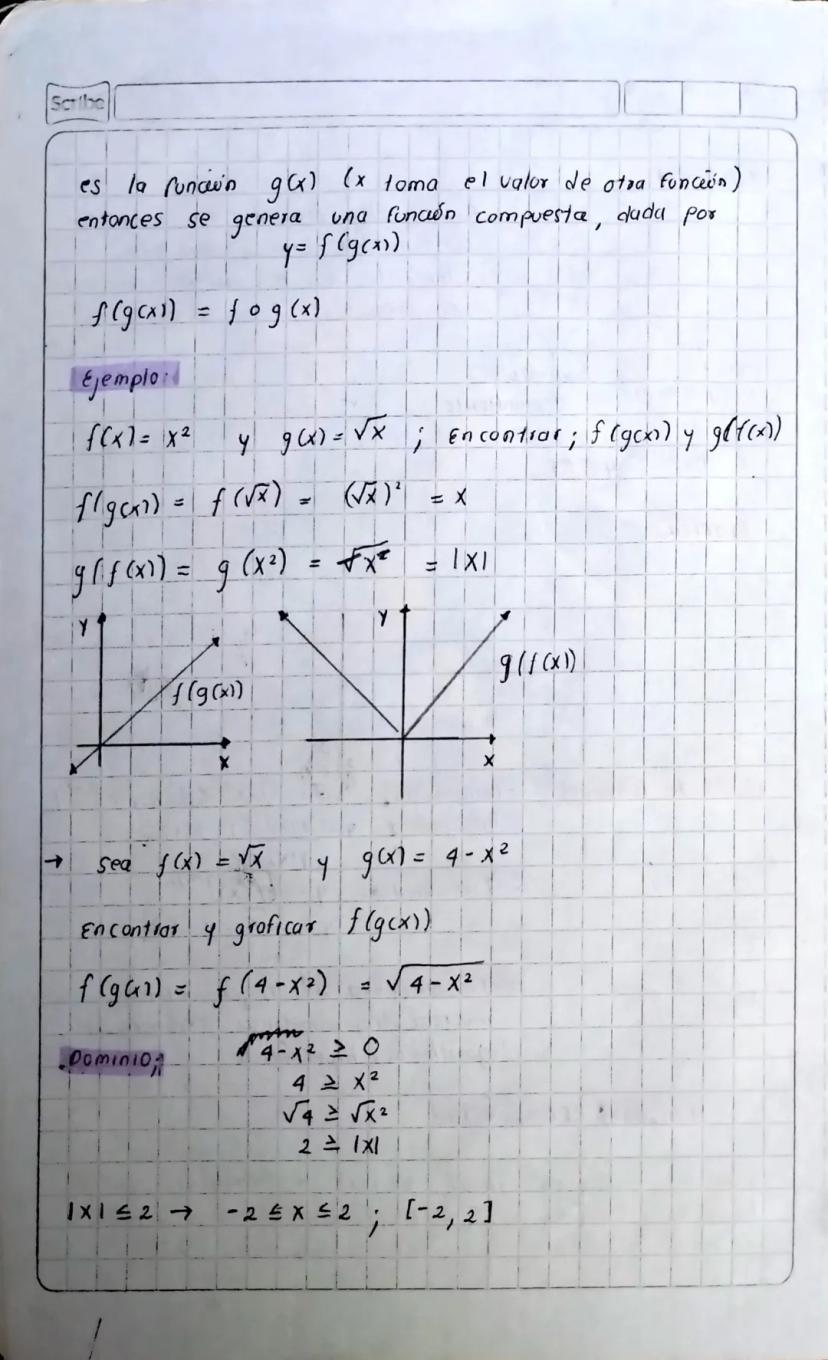 Scribe
es la función g(x) (x toma el valor de otra función)
entonces se genera una función compuesta, dada por
y= f(g(x))
f(g(x)) = f o g(x)
Ejemplo:
f(x)= x² y g(x)= √x ; Encontrar; f(g(x)) y g(f(x))
f(g(x)) = f(√x) = (√x)² = x
g(f(x)) = g(x²) = √x² = |x|
Y
f(g(x))
X
Y
g(f(x))
X
→ sea f(x) = √x y g(x) = 4-x²
Encontrar y graficar f(g(x))
f(g(x)) = f(4-x²) = √4-x²
Dominio;
4-x² ≥ 0
4 ≥ x²
√4 ≥ √x²
2 ≥ |x|
|x| ≤ 2 → -2 ≤ x ≤ 2 ; [-2, 2]